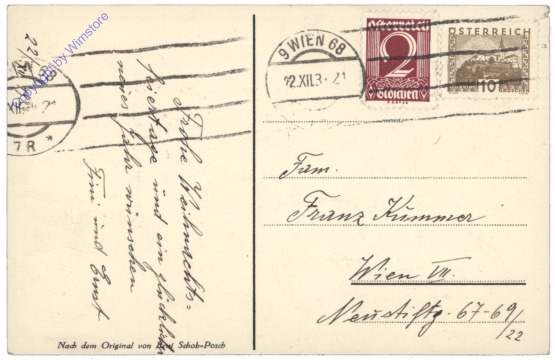 22/XII
Copyright by Winstore
7R *
9 WIEN 68
22.XII.3 21
Österreich
2
Groschen
ÖSTERREICH
10
Frohe Weihnachts=
feiertage und ein glückliches
neues Jahr wünschen
Fini und Ernst
Fam.
Franz Kummer
Wien VII.
Neustiftg. 67-69/22
Nach dem Original von Schob-Posch